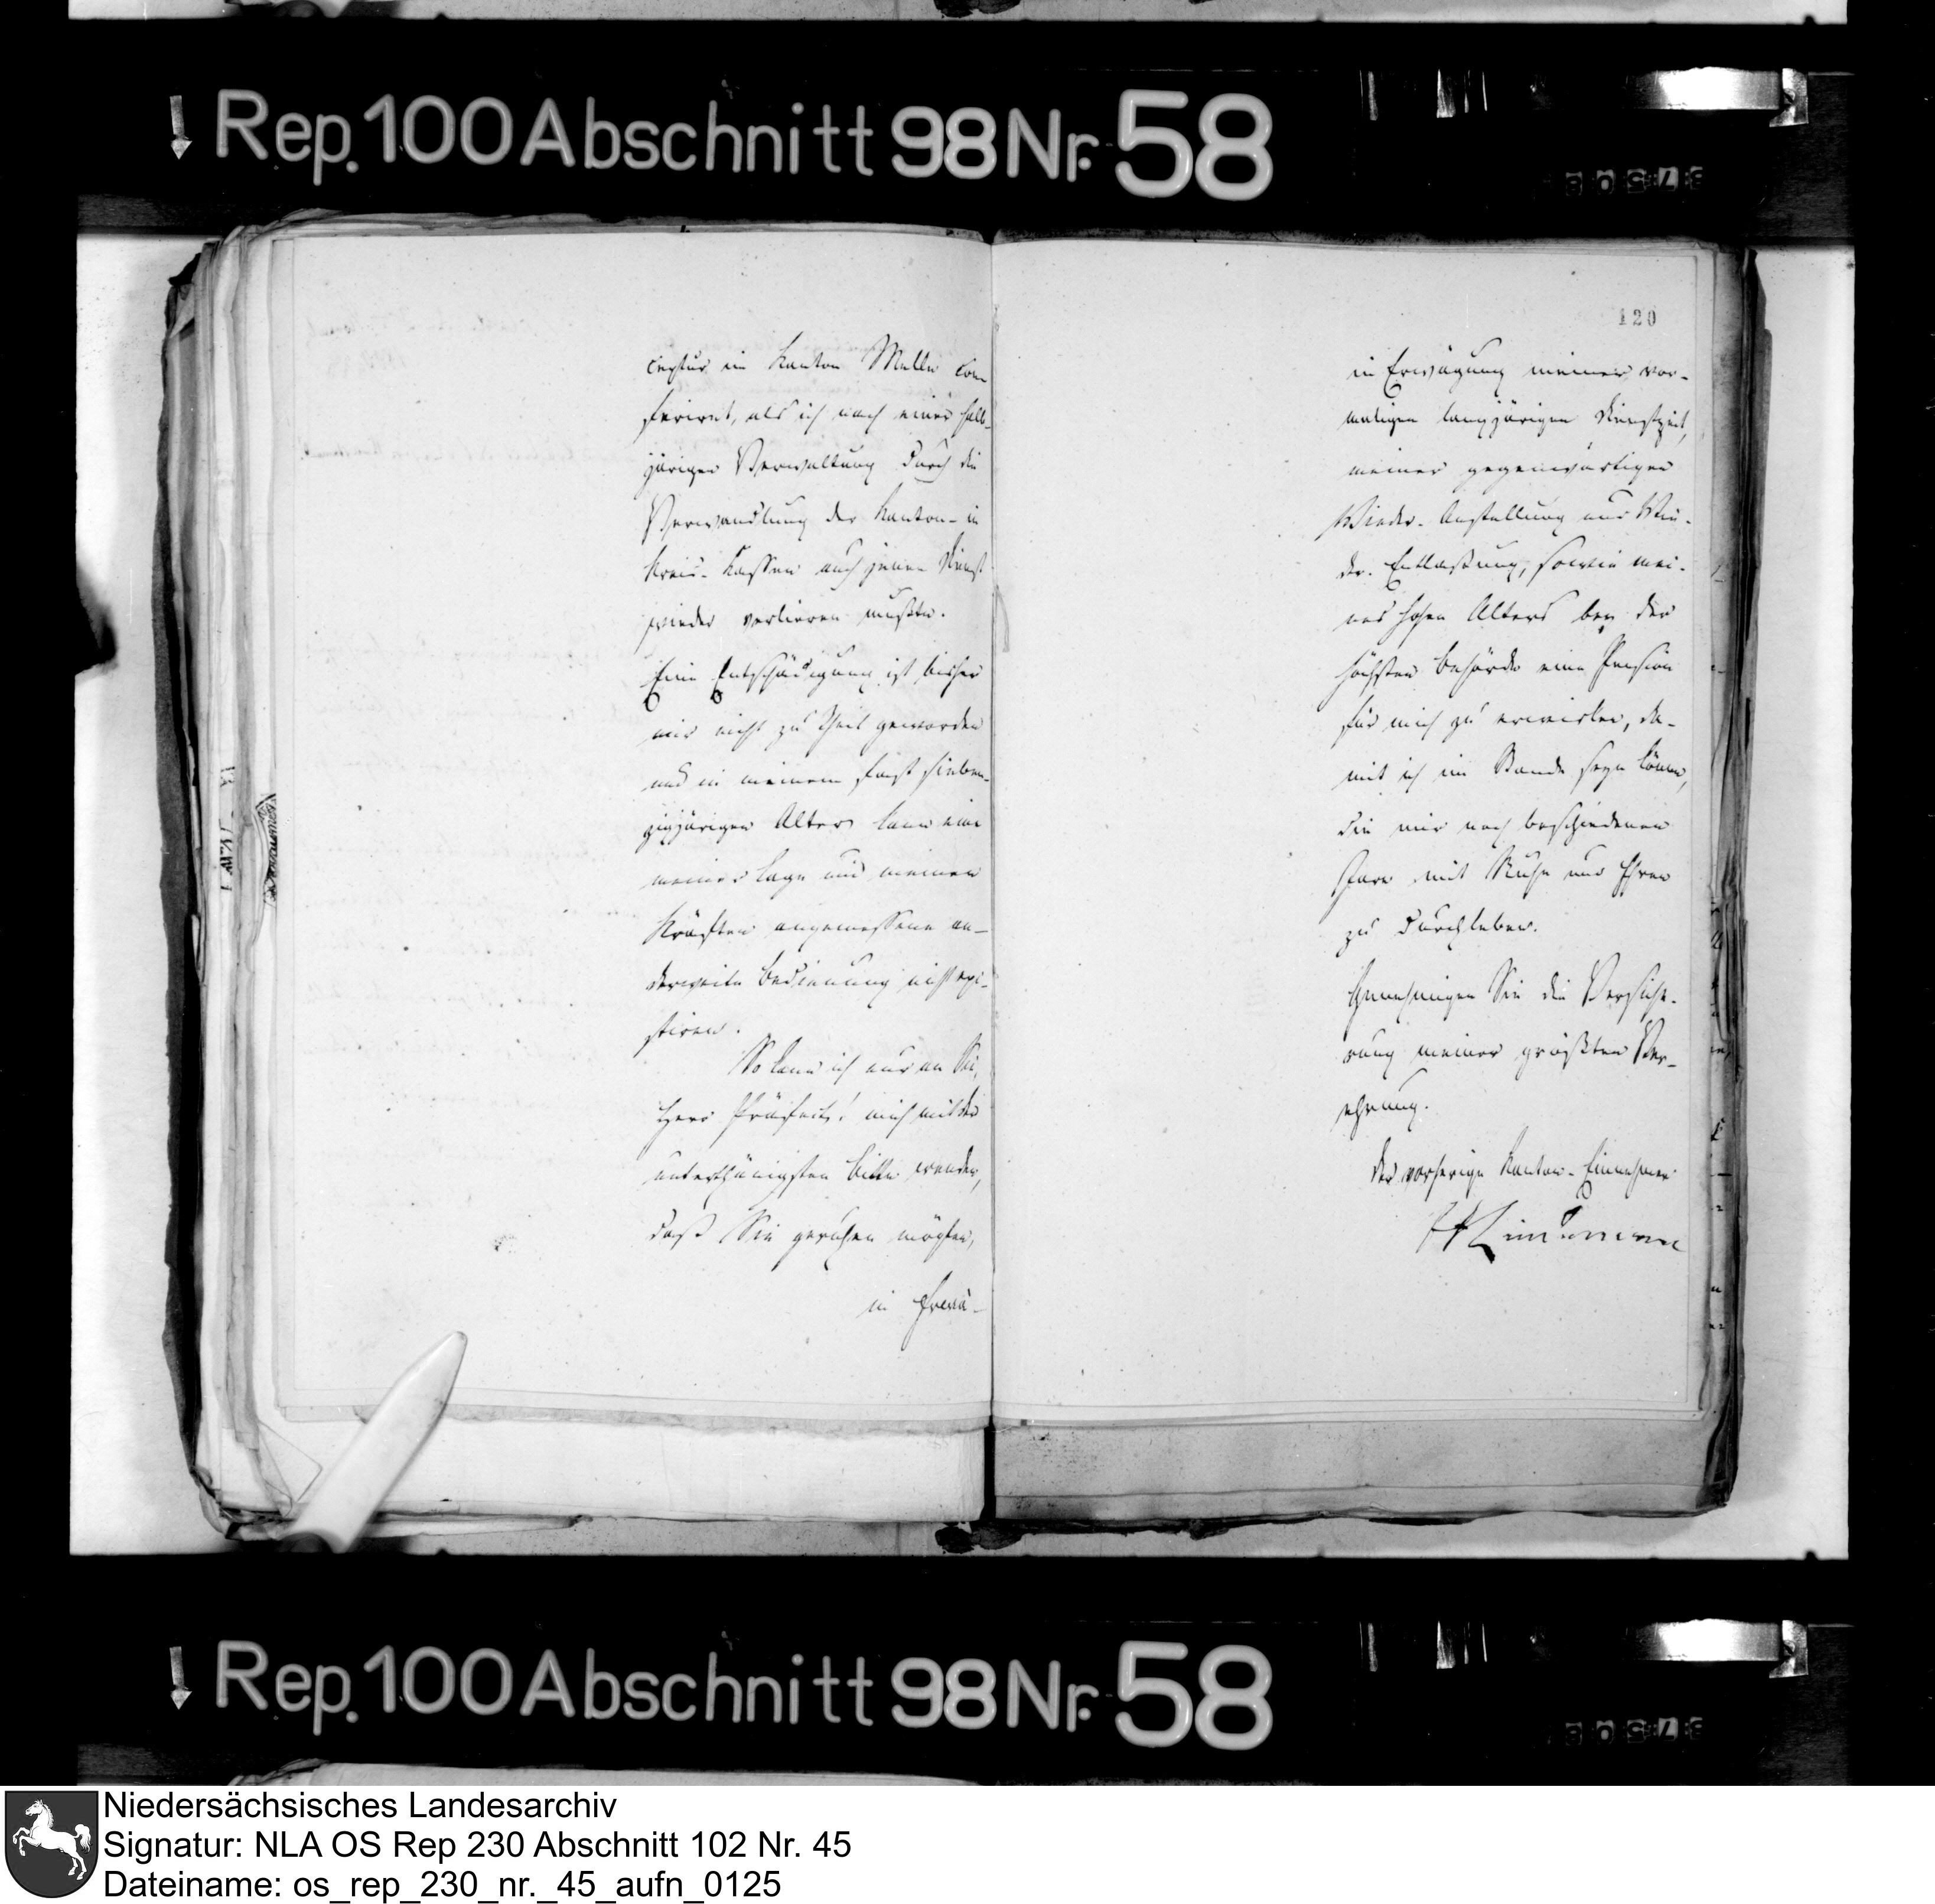 Rep. 100 Abschnitt 98 Nr. 58
ceptur im Kanton Melle con
ferirt, als ich nach einer halb-
järigen Verwaltung durch die
Verwandlung der Kanton- in
Kreis-Kassen auch jenen Dienst
wieder verlieren mußte.
Eine Entschädigung ist bisher
mir nicht zu Theil geworden
und in meinem fast sieben-
zigjärigen Alter kann eine
meiner Lage und meinen
Kräften angemessene an-
derweite Bedienung nicht exi-
stiren.
So kann ich nur an Sie,
Herr Präfect! mich mit der
unterthänigsten Bitte wenden,
daß Sie geruhen mögten,
in Erwä-
120
in Erwägung meiner vor-
maligen langjärigen Dienstzeit,
meiner gegenwärtigen
Wieder-Anstellung und Wie-
der-Entlaßung, sowie mei-
nes hohen Alters bey der
höchsten Behörde eine Pension
für mich zu erwirken, da-
mit ich im Stande seyn könne,
die mir noch beschiedenen
Jare mit Ruhe und Ehren
zu durchleben.
Genehmigen Sie die Versiche-
rung meiner größten Ver-
ehrung.
Der vorherige Kanton-Einnehmer
Lindemann
Rep. 100 Abschnitt 98 Nr. 58
Niedersächsisches Landesarchiv
Signatur: NLA OS Rep 230 Abschnitt 102 Nr. 45
Dateiname: os_rep_230_nr._45_aufn_0125